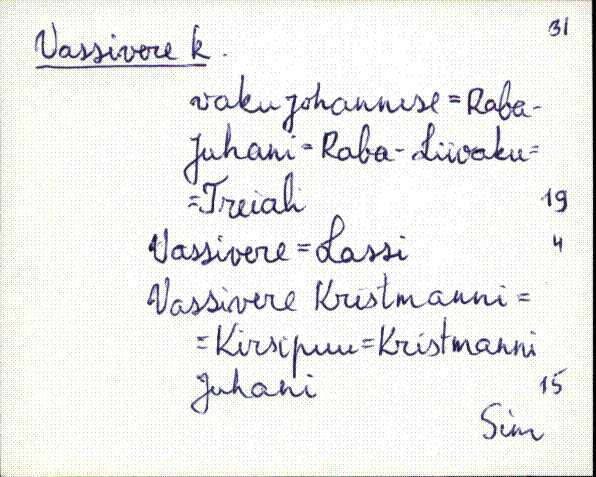 31
Vassivere k.
vaku Johannese = Raba-
Juhani = Raba-Liivaku =
= Treiali 19
Vassivere = Lassi 4
Vassivere Kristmanni =
= Kirsipuu = Kristmanni
Juhani 15
Sim